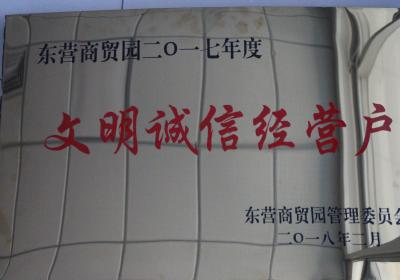 东营商贸园二〇一七年度
文明诚信经营户
东营商贸园管理委员会
二〇一八年二月